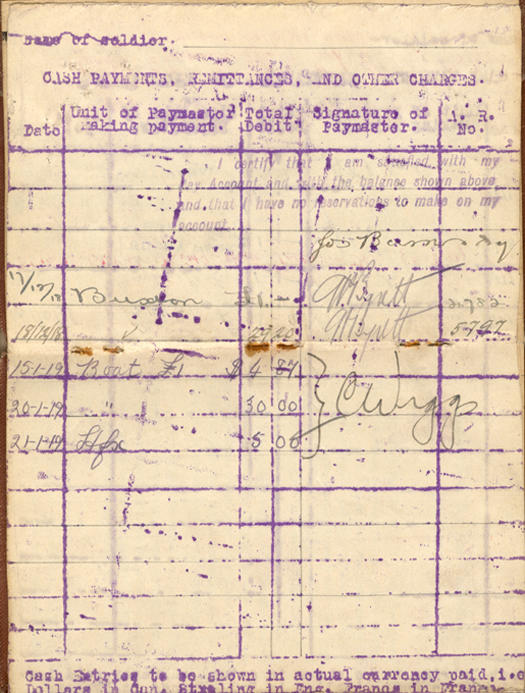 Name of Soldier.
CASH PAYMENTS, REMITTANCES, AND OTHER CHARGES.
Date Unit of Paymaster making payment. Total Debit Signature of Paymaster. A. R. No.
I certify that I am satisfied with my
Pay Account and with the balance shown above
and that I have no reservations to make on my
account
17/12/18 Buxton £1 –
18/12/18 5792
15-1-19 Boat £1 $4 87
20-1-19 30 00
21-1-19 Hfx 5 00
Cash Entries to be shown in actual currency paid, i.e
Dollars in Can. Sterling in Eng. Francs in France